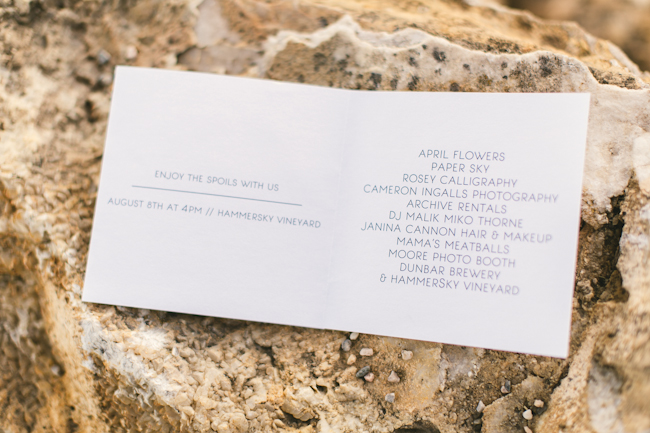 ENJOY THE SPOILS WITH US
AUGUST 8TH AT 4PM // HAMMERSKY VINEYARD
APRIL FLOWERS
PAPER SKY
ROSEY CALLIGRAPHY
CAMERON INGALLS PHOTOGRAPHY
ARCHIVE RENTALS
DJ MALIK MIKO THORNE
JANINA CANNON HAIR & MAKEUP
MAMA'S MEATBALLS
MOORE PHOTO BOOTH
DUNBAR BREWERY
& HAMMERSKY VINEYARD